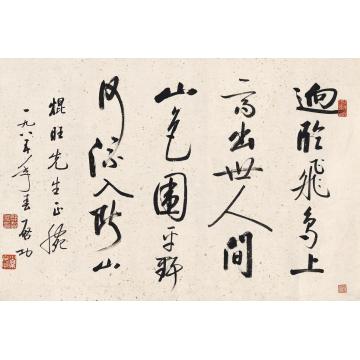 迥臨飛鳥上
高出世人間
山色圍平野
河流入斷山
焜旺先生正腕
一九八年春 啟功